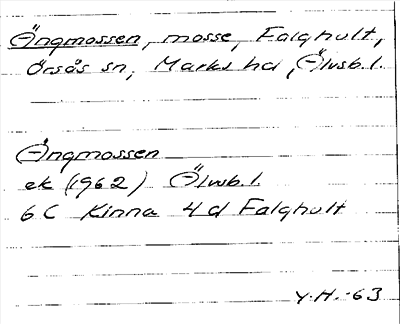 Ängmossen, mosse, Falghult,
Örsås sn, Marks hd, Älvsb.l.
Ängmossen
ek (1962) Älvsb.l.
6C Kinna 4d Falghult
Y.H.-63